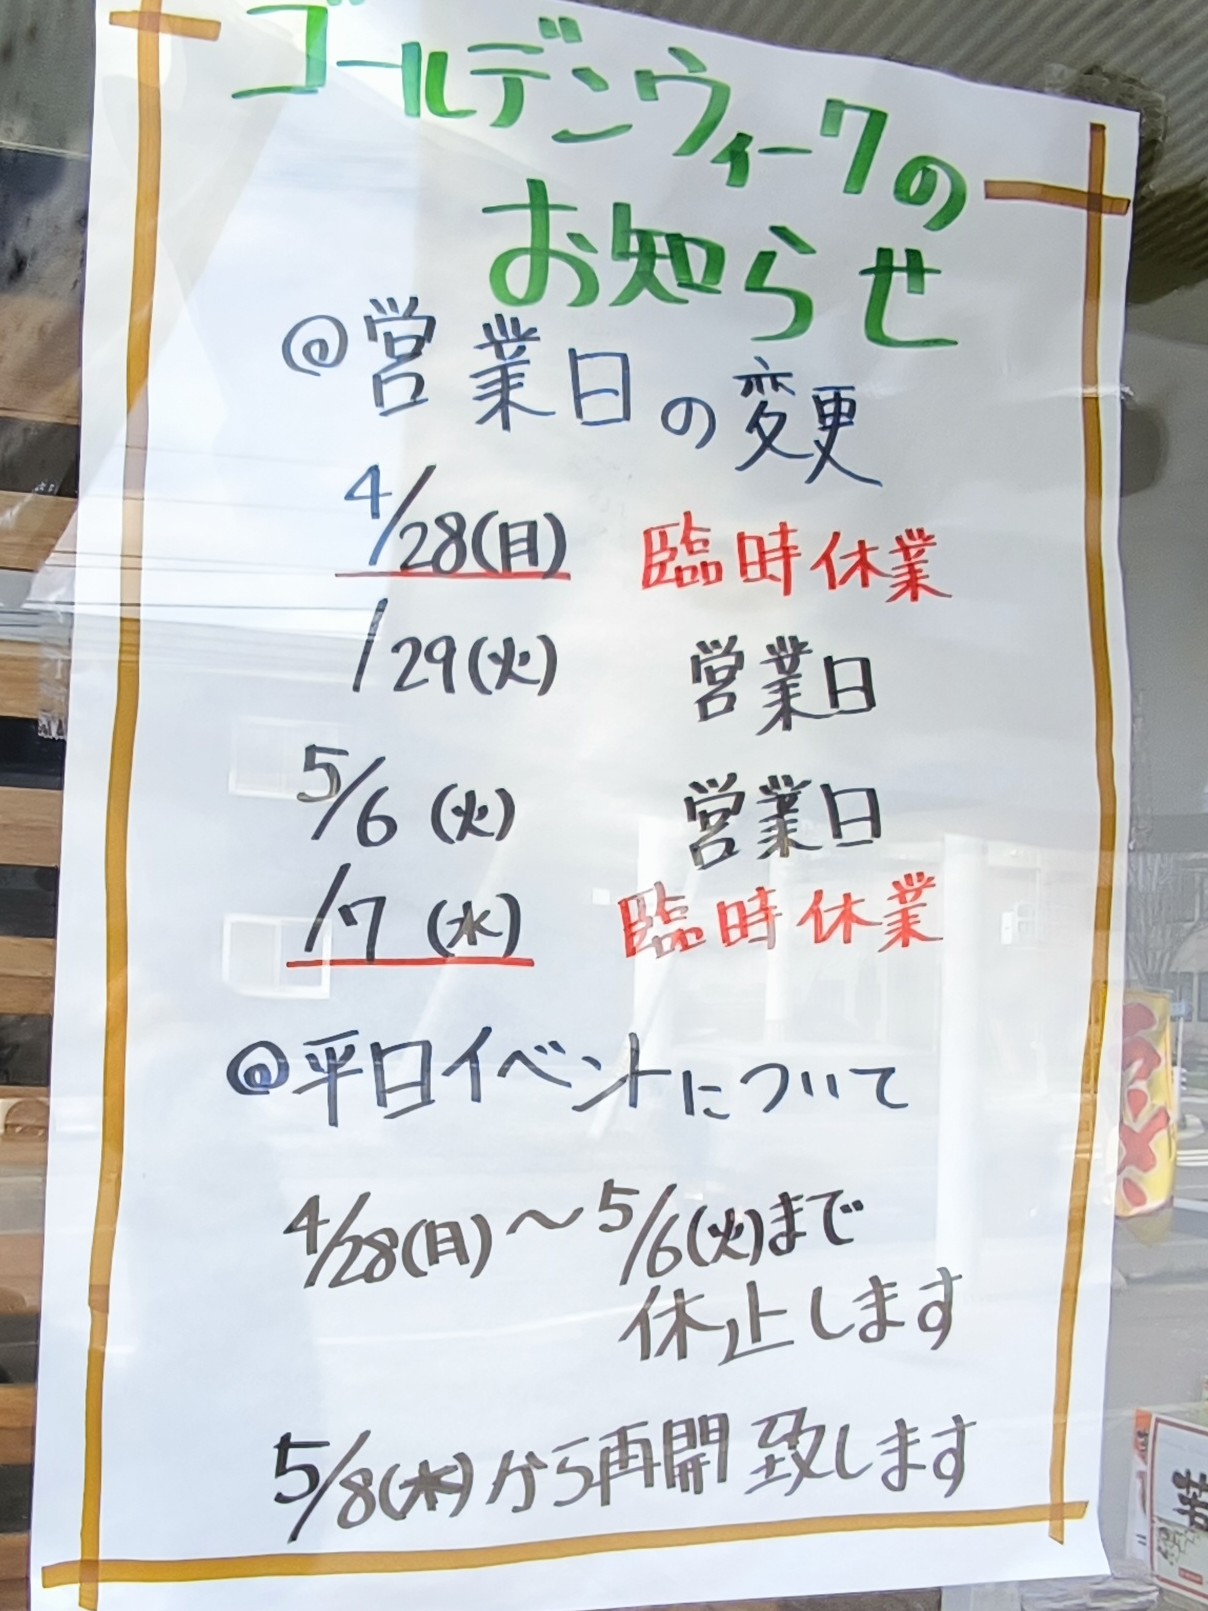 ゴールデンウィークの
お知らせ
@営業日の変更
4/28(日) 臨時休業
/29(火) 営業日
5/6(火) 営業日
/7(水) 臨時休業
@平日イベントについて
4/28(日)～5/6(火)まで
休止します
5/8(木)から再開致します